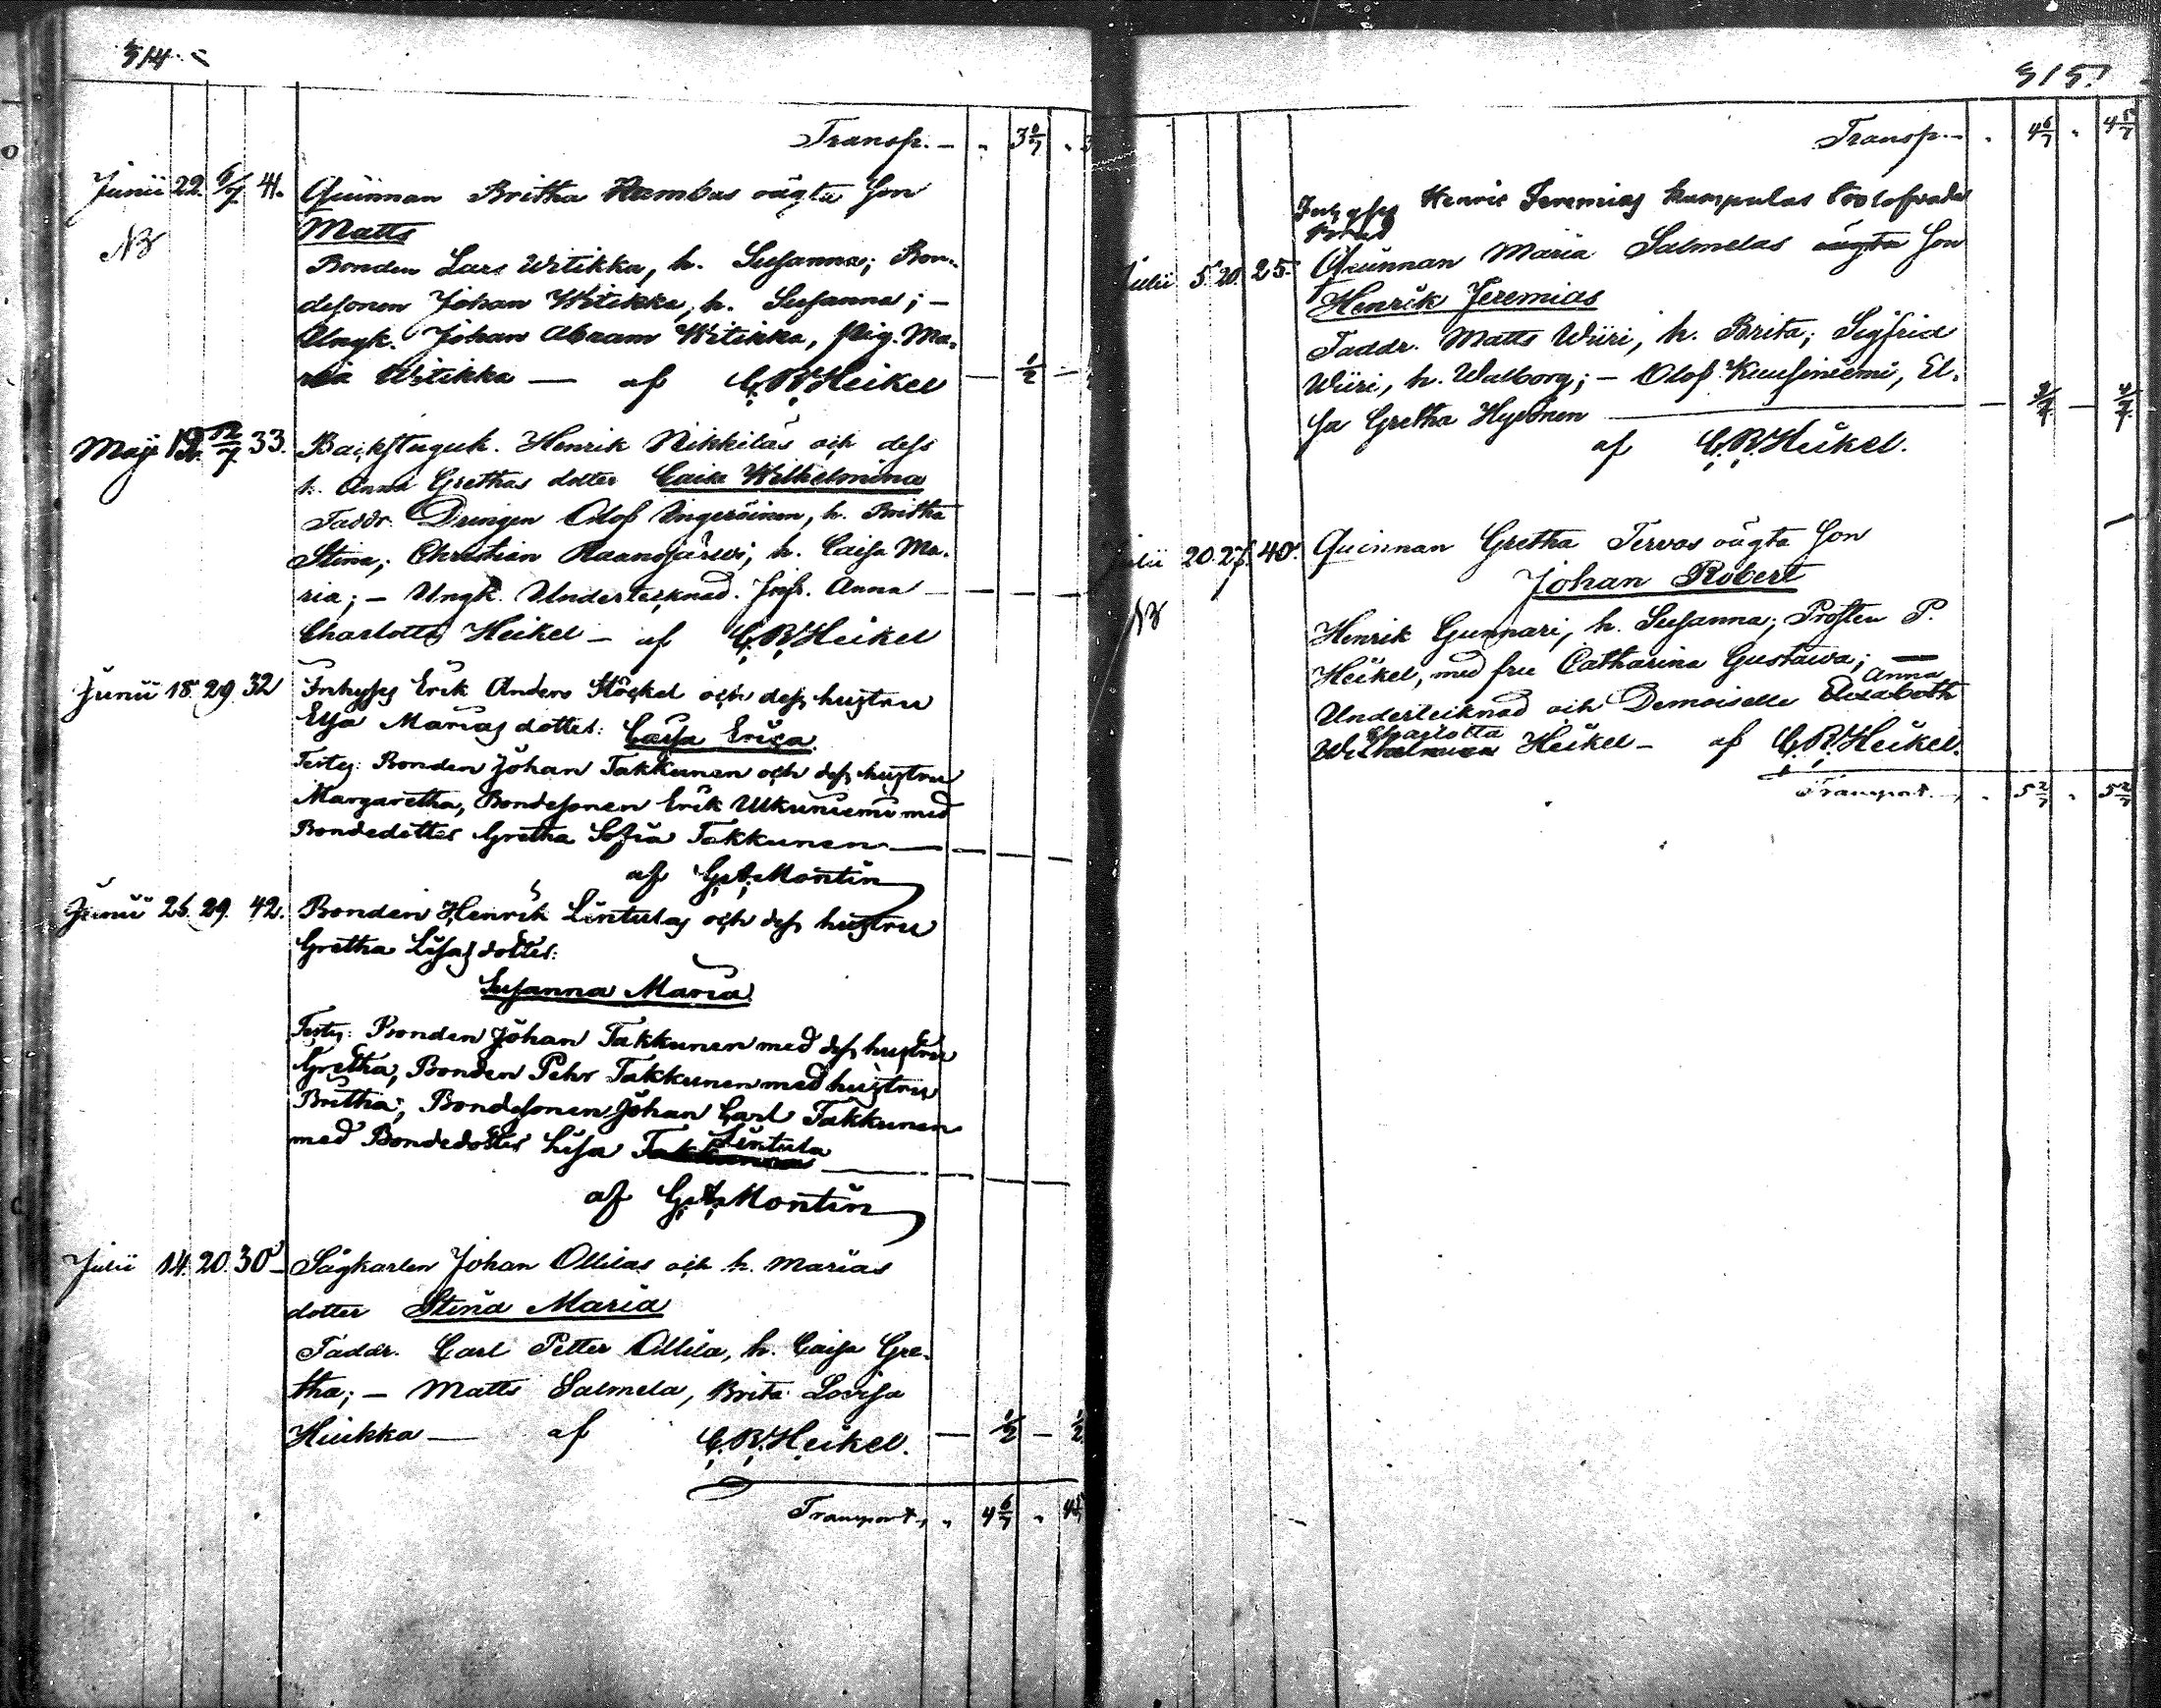 314.
Transp. - " 3 6/7 "
Junii 22. 6/7. 41. Quinnan Britha Hambas oägta Son
Matts
NB
Bonden Lars Witikka, h. Susanna; Bon-
desonen Johan Witikka, h. Susanna; -
Ungk. Johan Abram Witikka, Pig. Ma-
ria Witikka — af C.R. Heikel — 1/2 —
Maji 12/7. 33. Backstuguk. Henrik Nikkiläs och dess
h. Anna Grethas dotter Caisa Wilhelmina
Faddr. Drengen Olof Ingeröinen, h. Britha
Stina; Christian Raanojärwi, h. Caisa Ma-
ria; - Ungk. Undertecknad. Jnfr. Anna — — —
Charlotta Heikel - af C.R. Heikel
Junii 18. 29. 32 Inhyses Erik Anders Stöckel och dess hustru
Elsa Marias dotter: Caisa Erica.
Test: Bonden Johan Takkunen och dess hustru
Margaretha, Bondesonen Erik Ulkuniemi med
Bondedotter Gretha Sofia Takkunen — — —
af G.A. Montin
Junii 26. 29. 42. Bonden Henrik Lintulas och dess hustru
Gretha Lisas dotter:
Susanna Maria.
Test: Bonden Johan Takkunen med dess hustru
Gretha, Bonden Pehr Takkunen med hustru
Britha; Bondesonen Johan Carl Takkunen
Lintula
med Bondedotter Lisa Takkunen — — —
af G.A. Montin
Julii 14. 20. 30 Sågkarlen Johan Ollilas och h. Marias
dotter Stina Maria
Faddr. Carl Petter Ollila, h. Caisa Gre-
tha; - Matts Salmela, Brita Lovisa
Hiukka — af C.R. Heikel. — 1/2 — 1/2
Transport, " 4 6/7 "
315.
Transp. - " 4 6/7 " 4 5/7
Henric Jeremias Kumpulas
Julii 5. 20. 25. Quinnan Maria Salmelas oägta Son
Henrik Jeremias
Faddr. Matts Wiiri, h. Brita; Sigfrid
Wiiri, h. Walborg; - Olof Kuusiniemi, El-
sa Gretha Hyvönen —
af C.R. Heikel.
Julii 20. 27. 40. Quinnan Gretha Tervos oägta Son
Johan Robert
NB
Henrik Gunnari, h. Susanna; Prosten P.
Heikel, med fru Catharina Gustawa; —
Anna
Undertecknad och Demoiselle Elisabeth
Charlotta
Wilhelmina Heikel - af C.R. Heikel.
Transport. " 5 2/7 " 5 2/7